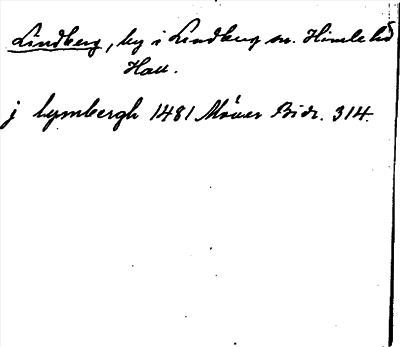 Lindberg, by i Lindberg sn. Himle hd
Hall.
j lymbergh 1481 Möller Bidr. 314.